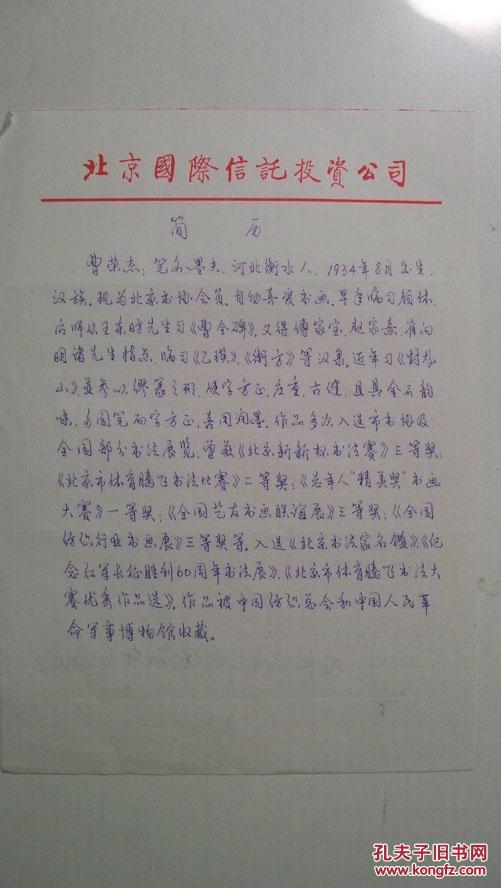 北京國際信託投資公司
简 历
曹荣杰，笔名：墨夫，河北衡水人，1934年8月出生，
汉族。现为北京书协会员，自幼喜爱书画，早年临习颜体，
后师从王东时先生习《曹全碑》，又得傅家宝、赵家熹、崔向
明诸先生指点，临习《乙瑛》、《衡方》等汉隶，近年习《封龙
山》，并参以缪篆之形，使字方正、庄重、古健，且具金石韵
味，多圆笔而字方正，善用润墨。作品多次入选市书协及
全国部分书法展览，曾获《北京新新杯书法赛》三等奖；
《北京市体育腾飞书法比赛》二等奖；《老年人“精英奖”书画
大赛》一等奖；《全国艺友书画联谊展》三等奖；《全国
纺织行业书画展》三等奖等。入选《北京书法家名鉴》、《纪
念红军长征胜利60周年书法展》、《北京市体育腾飞书法大
赛优秀作品选》。作品被中国纺织总会和中国人民革
命军事博物馆收藏。
孔夫子旧书网
www.kongfz.com